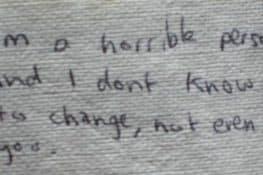 m a horrible perso
nd I dont know
to change, not even
you.